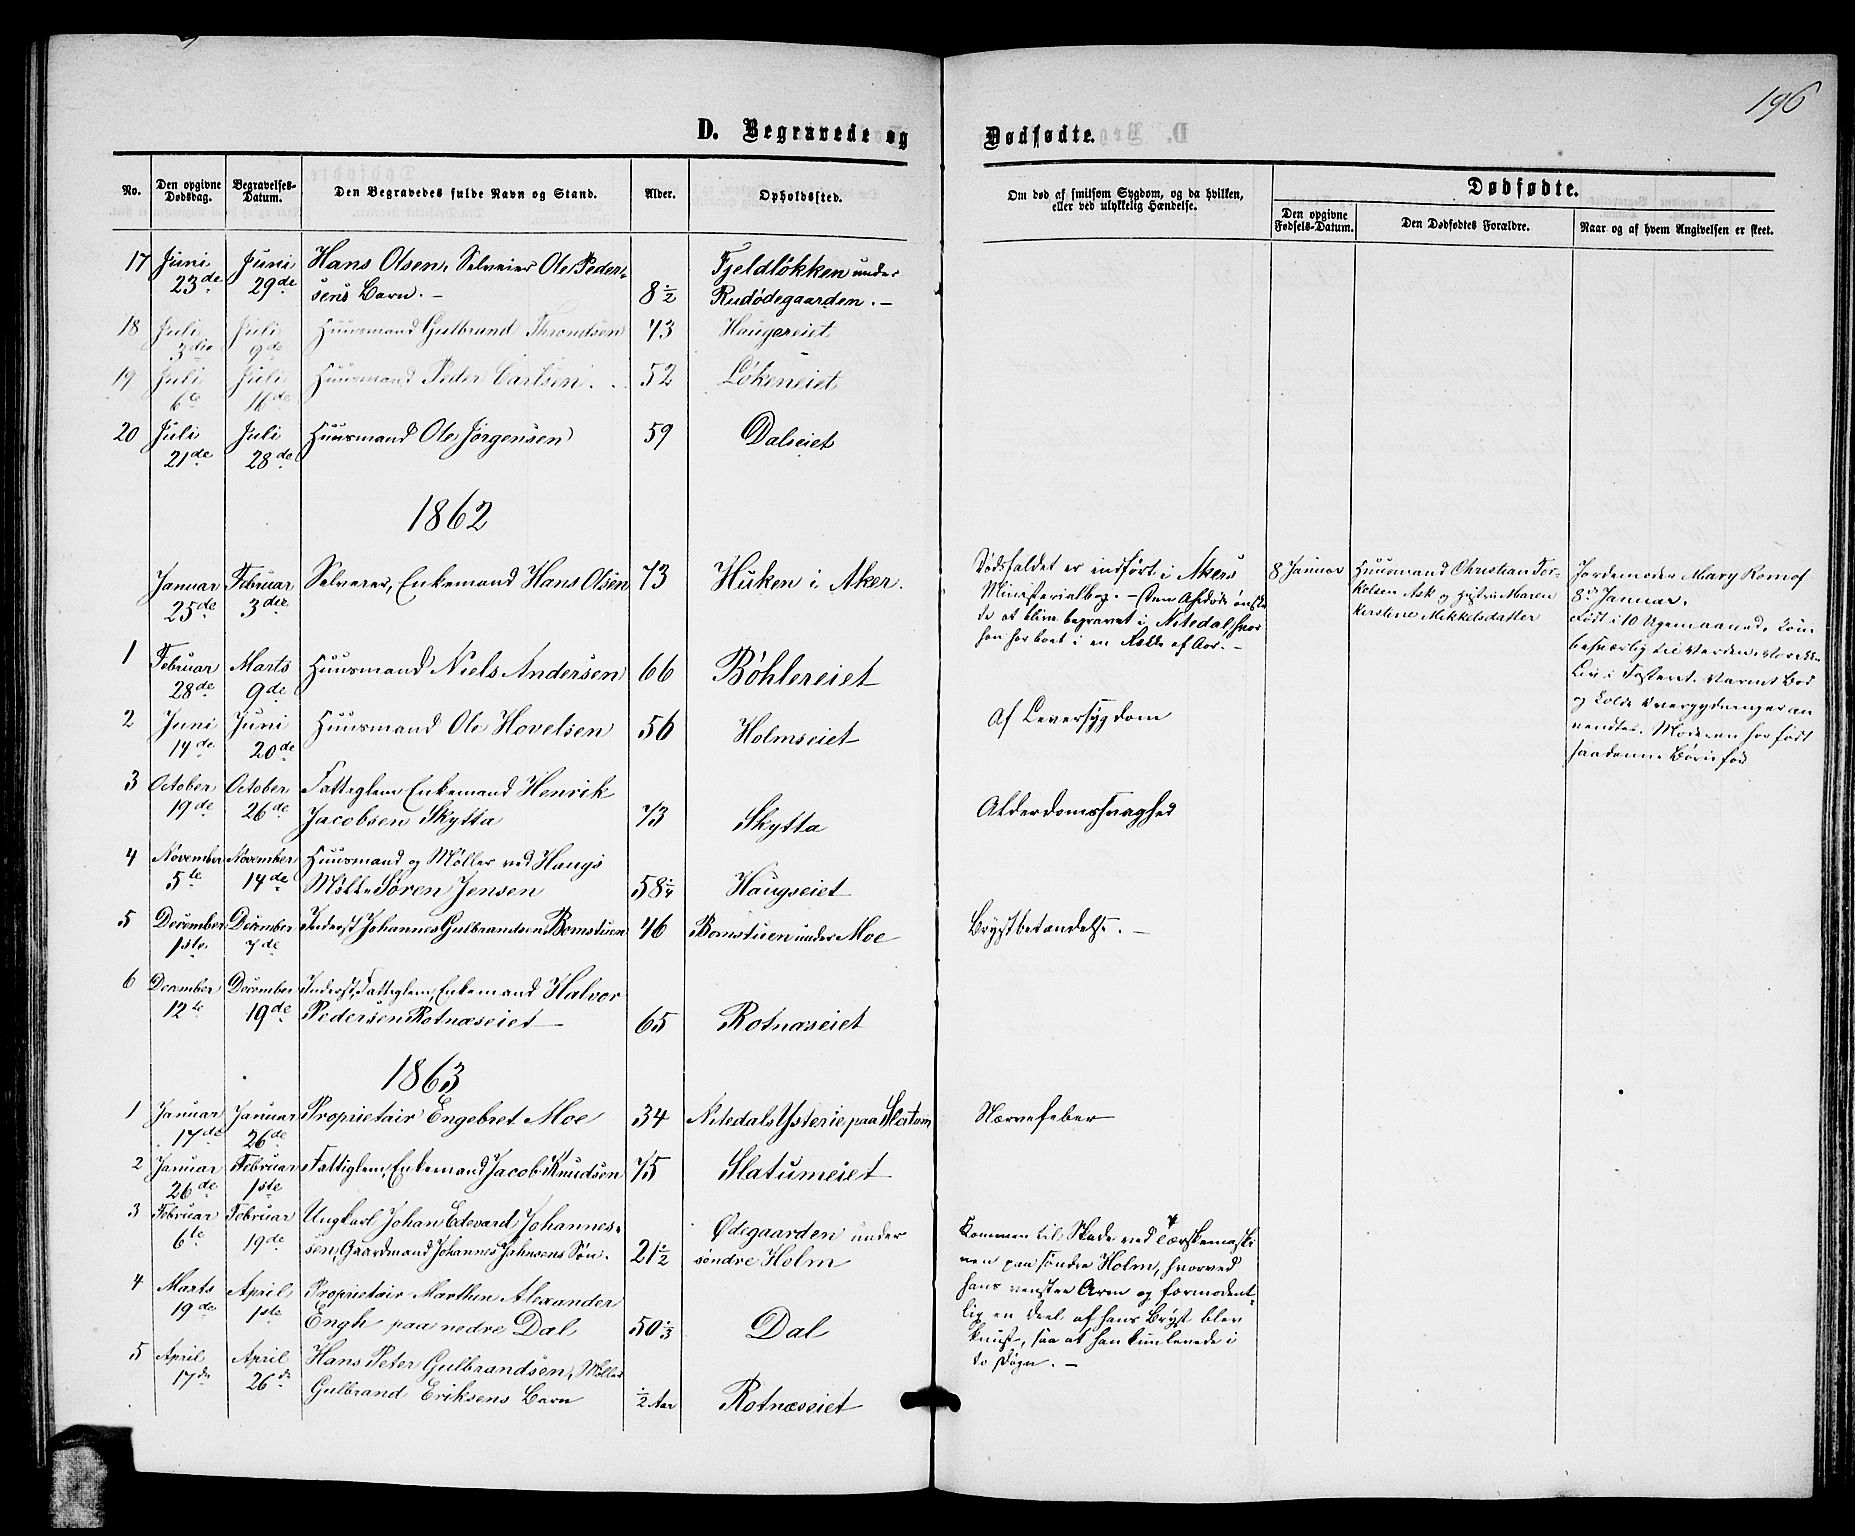 196
D. Begravede og Dødfødte.
No.
Den opgivne Dødsdag.
Begravelses-Datum.
Den Begravedes fulde Navn og Stand.
Alder.
Opholdssted.
Om død af smitsom Sygdom, og da hvilken,
eller ved ulykkelig Hændelse.
Dødfødte.
Den opgivne Fødsels-Datum.
Den Dødfødtes Forældre.
Naar og af hvem Angivelsen er skeet.
17 Juni Juni Hans Olsen, Selveier Ole Peder- Fjeldløkken under
23de 29de sens Barn. - 8 1/2 Rudødegaarden. -
18 Juli Juli Huusmand Gulbrand Throndsen 73 Haugereiet
3die 9de
19 Juli Juli Huusmand Peder Carlsen. 52 Løkeneiet
6te 16de
20 Juli Juli Huusmand Ole Jørgensen 59 Dalseiet
21de 28de
1862
Januar Februar Selveier, Enkemand Hans Olsen 73 Huken i Aker.
25de 3die
Dødsfaldet er indført i Akers
Ministerialbog. - Den Afdøde ønske
de at blive begravet i Nitedal, hvor
han har boet i en Række af Aar. -
8 Januar
Huusmand Christian Ter-
kelsen Ask og Hustru Maren
Kirstine Mikkelsdatter
Jordemoder Mary Romof
8de Januar.
Født i 10 Ugemaaned. Kom
besværlig til Verden. Var ikke
Liv i Fosteret. Varmt Bad
og kolde Overgydninger an
vendtes. Moderen har født
saadanne Børn før
1 Februar Marts Huusmand Niels Andersen 66 Bøhlereiet
28de 9de
2 Juni Juni Huusmand Ole Hovelsen 56 Holmseiet Af Leversygdom
14de 20de
3 October October Fattiglem Enkemand Henrik
19de 26de Jacobsen Skytta 73 Skytta Alderdomssvaghed
4 November November Huusmand og Møller ved Haugs
5te 14de Mølle Søren Jensen 58 1/4 Haugseiet
5 December December Inderst Johannes Gulbrandsen Bomstuen 46 Bomstuen under Moe Brystbetændelse. -
1ste 7de
6 December December Inderst, Fattiglem, Enkemand Halvor
12te 19de Pedersen Rotnæseiet 65 Rotnæseiet
1863
1 Januar Januar Proprietair Engebret Moe 34 Nitedals Ysterie paa Slatum Nervefeber
17de 26de
2 Januar Februar Fattiglem, Enkemand Jacob Knudsen 75 Slatumeiet
26de 1ste
3 Februar Februar Ungkarl Johan Edevard Johannes- Ødegaarden under
6te 19de sen, Gaardmand Johannes Johnsens Søn. 21 1/2 søndre Holm
Kommen til Skade ved Tærskemaski
nen paa søndre Holm, hvorved
hans venstre Arm og formodent-
lig en Deel af hans Bryst blev
knust, saa at han kun levede i
to Døgn. -
4 Marts April Proprietair Marthin Alexander
19de 1ste Engh paa nedre Dal 50 1/3 Dal
5 April April Hans Peter Gulbrandsen, Møller
17de 26de Gulbrand Eriksens Barn 1/2 Aar Rotnæseiet